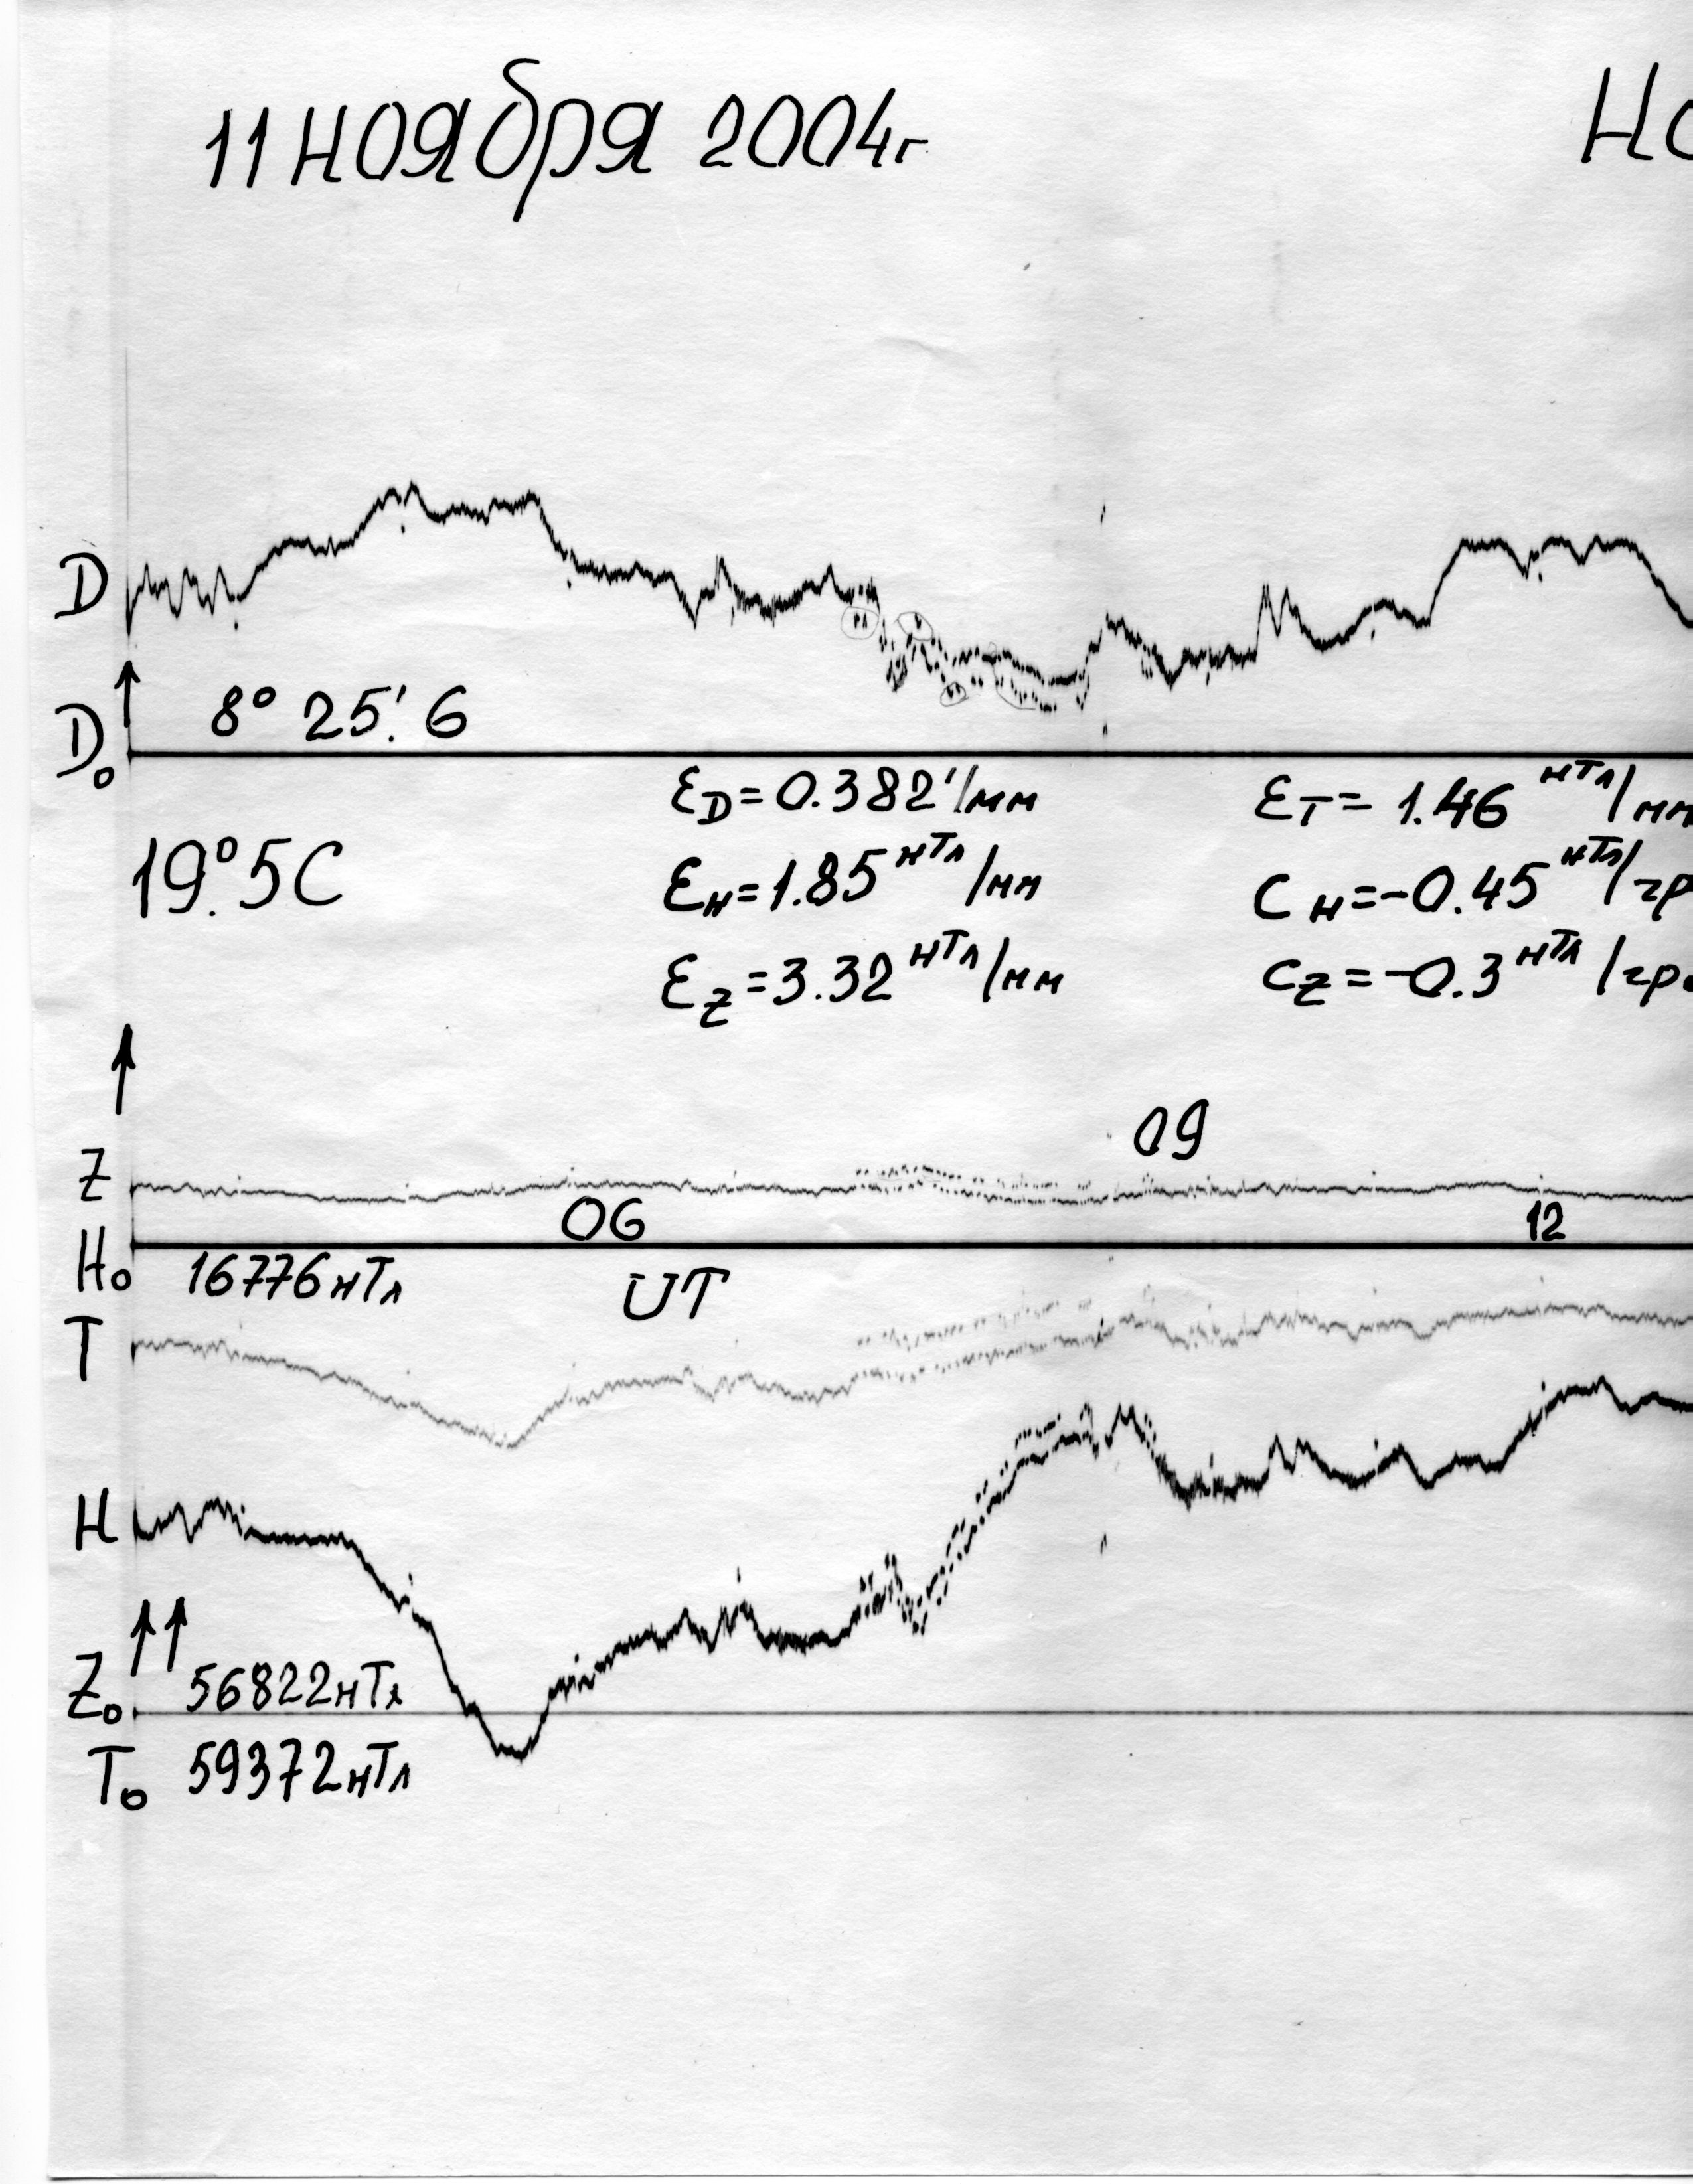 11 ноября 2004г
D
8° 25!6
D₀
εD=0.382'/мм
εT=1.46 нТл/мм
19°.5С
εH=1.85 нТл/мм
CH=-0.45 нТл/гр
εZ=3.32 нТл/мм
CZ=-0.3 нТл/гр
09
Z
06
12
H₀ 16776нТл
UT
T
H
Z₀ 56822нТл
T₀ 59372нТл